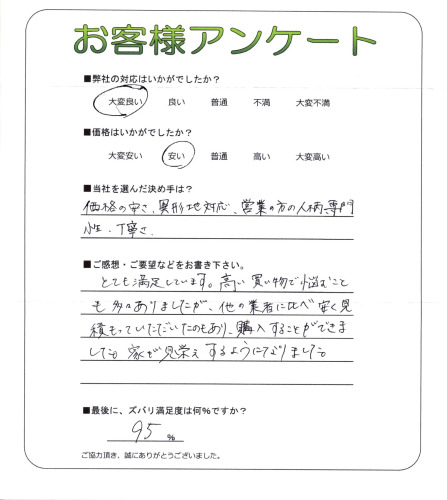 お客様アンケート
■弊社の対応はいかがでしたか？
大変良い 良い 普通 不満 大変不満
■価格はいかがでしたか？
大変安い 安い 普通 高い 大変高い
■当社を選んだ決め手は？
価格の安さ、異形地対応、営業の方の人柄、専門
性・丁寧さ
■ご感想・ご要望などをお書き下さい。
とても満足しています。高い買い物で悩むこと
も多々ありましたが、他の業者に比べ安く見
積もっていただいたのもあり、購入することができま
した。家が見栄えするようになりました。
■最後に、ズバリ満足度は何%ですか？
95 %
ご協力頂き、誠にありがとうございました。